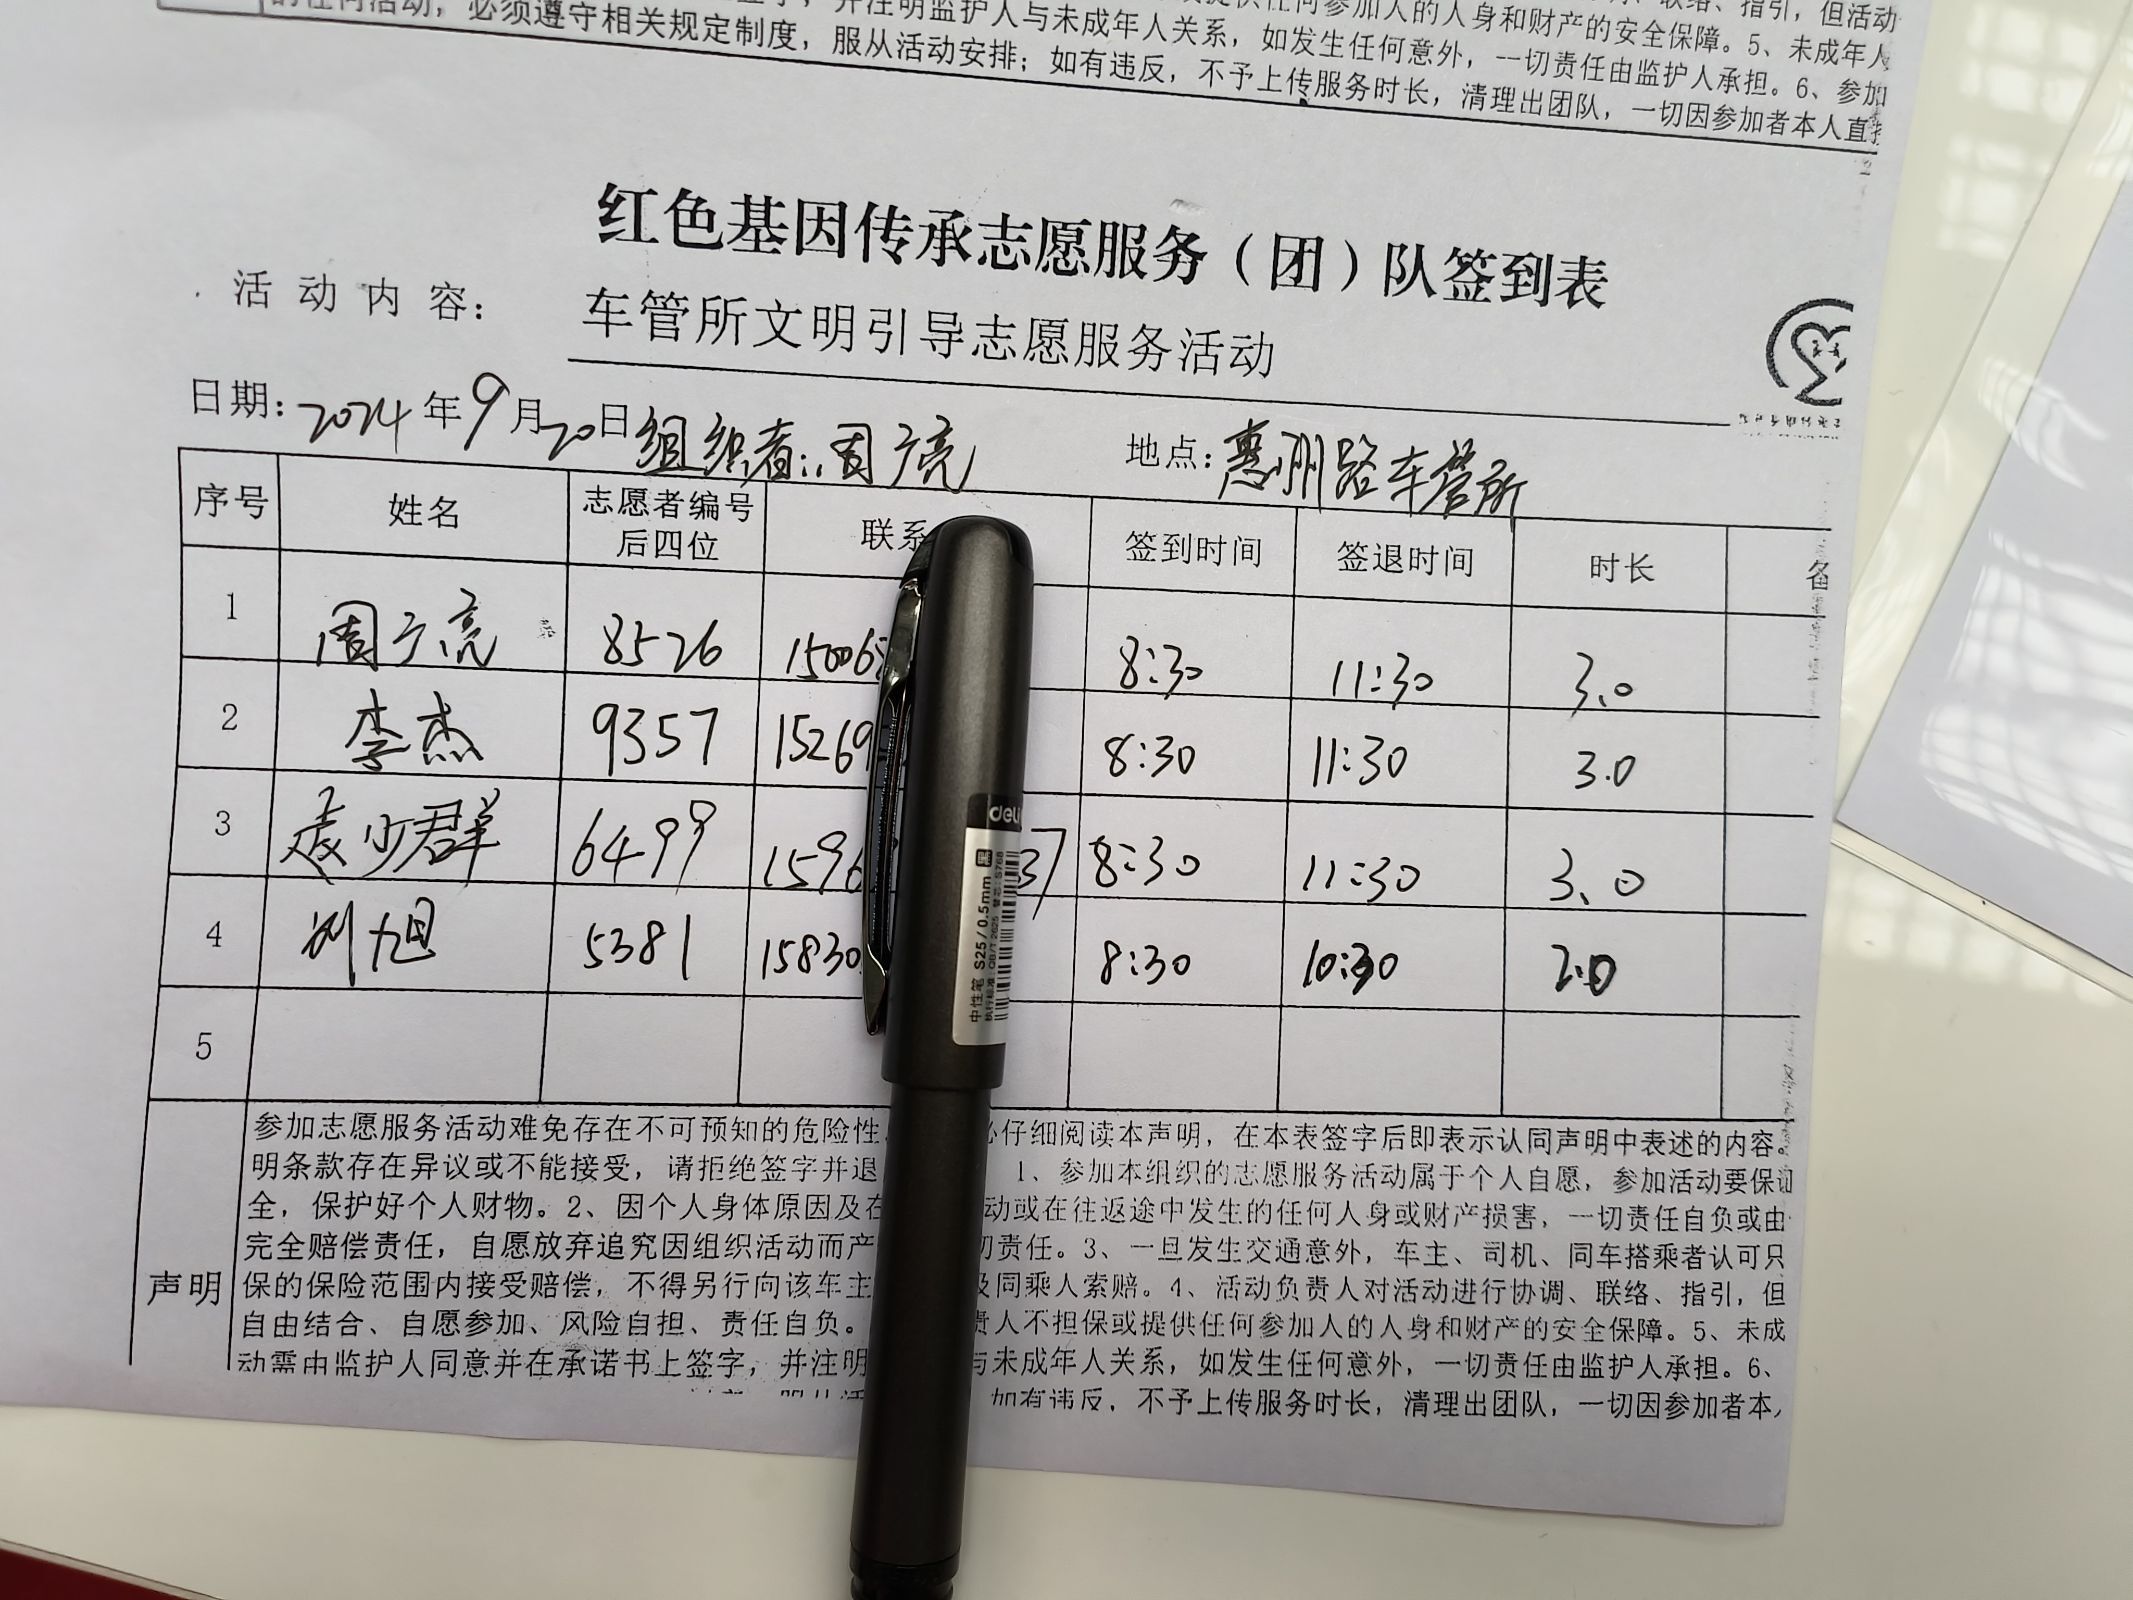 的任何活动，必须遵守相关规定制度，服从活动安排；如有违反，不予上传服务时长，清理出团队，一切因参加者本人直接
并注明监护人与未成年人关系，如发生任何意外，一切责任由监护人承担。6、参加
提供任何参加人的人身和财产的安全保障。5、未成年人
联络、指引，但活动
红色基因传承志愿服务（团）队签到表
活动内容： 车管所文明引导志愿服务活动
日期：2024年9月20日 组织者：周广亮 地点：惠州路车管所
序号 姓名 志愿者编号后四位 联系 签到时间 签退时间 时长 备
1 周广亮 8526 15006 8:30 11:30 3.0
2 李杰 9357 15269 8:30 11:30 3.0
3 凌少群 6499 1596 37 8:30 11:30 3.0
4 刘旭 5381 15830 8:30 10:30 2.0
5
声明
参加志愿服务活动难免存在不可预知的危险性 必仔细阅读本声明，在本表签字后即表示认同声明中表述的内容。
明条款存在异议或不能接受，请拒绝签字并退 1、参加本组织的志愿服务活动属于个人自愿，参加活动要保证
全，保护好个人财物。2、因个人身体原因及在 动或在往返途中发生的任何人身或财产损害，一切责任自负或由
完全赔偿责任，自愿放弃追究因组织活动而产 切责任。3、一旦发生交通意外，车主、司机、同车搭乘者认可只
保的保险范围内接受赔偿，不得另行向该车主 及同乘人索赔。4、活动负责人对活动进行协调、联络、指引，但
自由结合、自愿参加、风险自担、责任自负。 责人不担保或提供任何参加人的人身和财产的安全保障。5、未成
动需由监护人同意并在承诺书上签字，并注明 与未成年人关系，如发生任何意外，一切责任由监护人承担。6、
如有违反，不予上传服务时长，清理出团队，一切因参加者本人
deli
中性笔 S25/0.5mm 黑
执行标准 QB/T 2625 替芯：S768